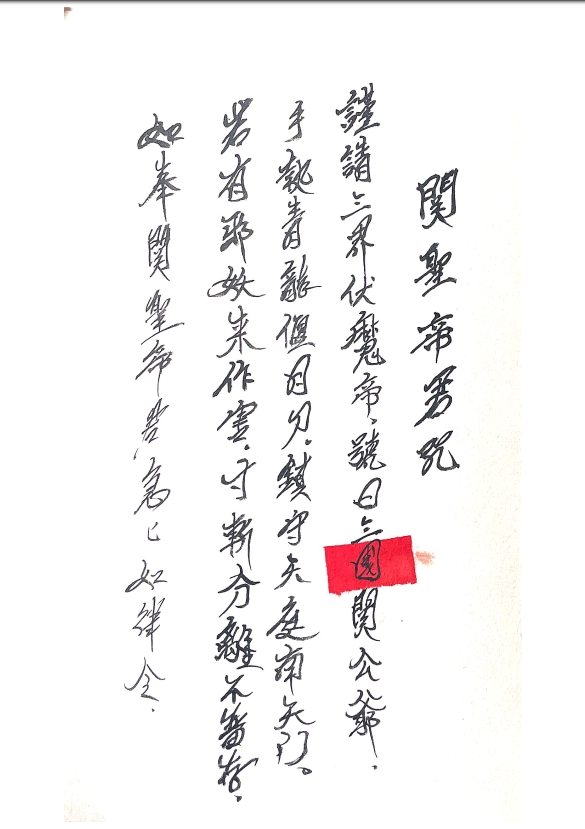 関聖帝君咒
謹請三界伏魔帝、號曰三國関公爺、
手執青龍偃月刀、鎮守天庭南天門。
若有邪妖来作害、寸斬分離不留存、
如奉関聖帝君急乚如律令、